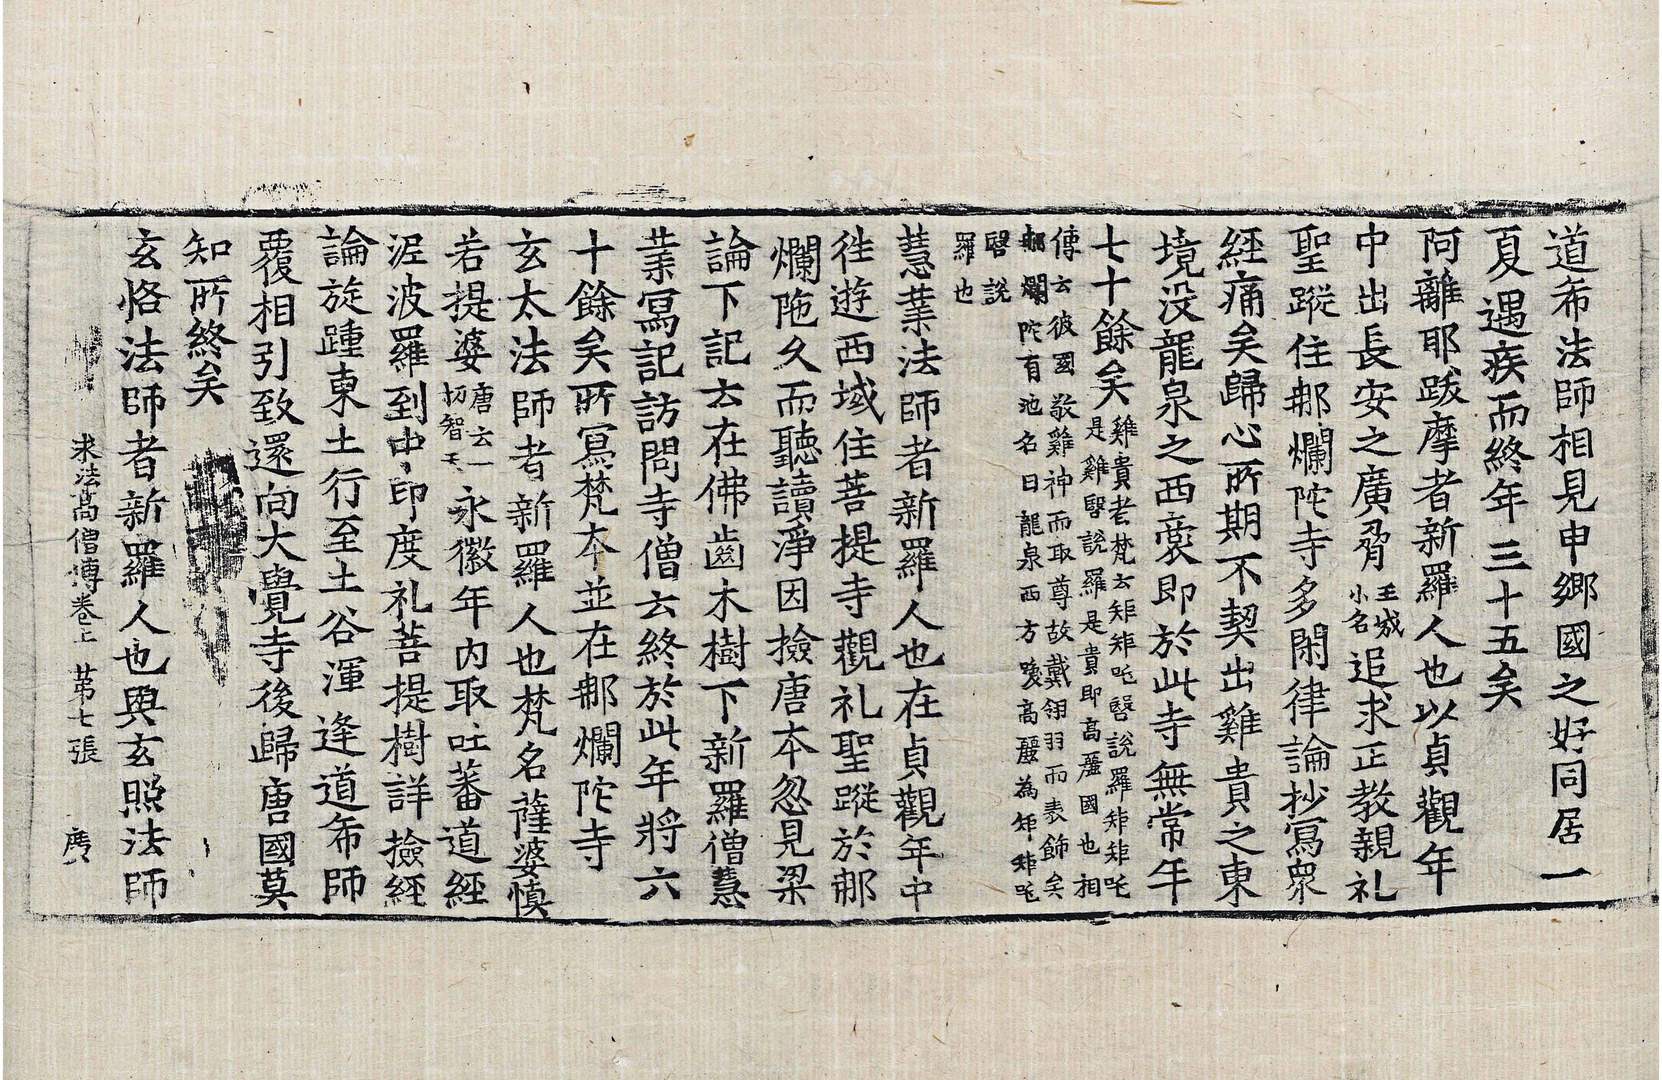 道希法師相見申鄉國之好同居一
夏遇疾而終年三十五矣
阿離耶跋摩者新羅人也以貞觀年
中出長安之廣脅王城小名追求正教親礼
聖蹤住那爛陀寺多閑律論抄寫衆
經痛矣歸心所期不契出雞貴之東
境没龍泉之西裔即於此寺無常年
七十餘矣雞貴者梵云矩矩吒醫說羅矩矩吒
是雞醫說羅是貴即高麗國也相
傳云彼國敬雞神而取尊故戴翎羽而表飾矣
那爛陀有池名曰龍泉西方喚高麗為矩矩吒
醫說
羅也
慧業法師者新羅人也在貞觀年中
徃遊西域住菩提寺觀礼聖蹤於那
爛陁久而聽讀淨因撿唐本忽見梁
論下記云在佛齒木樹下新羅僧慧
業寫記訪問寺僧云終於此年將六
十餘矣所寫梵本並在那爛陀寺
玄太法師者新羅人也梵名薩婆慎
若提婆唐云一切智天永徽年内取吐蕃道經
泥波羅到中印度礼菩提樹詳撿經
論旋踵東土行至土谷渾逢道希師
覆相引致還向大覺寺後歸唐國莫
知所終矣
玄恪法師者新羅人也與玄照法師
求法高僧傳卷上 苐七張 庤